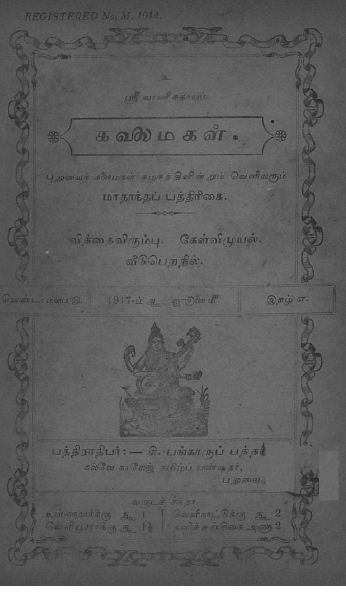 REGISTERED No, M. 1014.
உ
ஸ்ரீ வாணீ சகாயம்.
கலைமகள்.
புதுவைக் கலைமகள் கழகத்தினின்றும் வெளிவரும்
மாதாந்தப் பத்திரிகை.
வித்தைவிரும்பு. கேள்விமுயல்.
வீடுபெறநில்.
1917-ம் ௵ ஜூலை ௴
இதழ் எ.
பத்திராதிபர்:— சி. பங்காருப் பத்தர்
கல்வே காலேஜ் தமிழ்ப் பண்டிதர்,
புதுவை.
வருடச் சந்தா
உள்ளூருக்கு ரூ 1 வெளிநாட்டுக்கு ரூ 2
வெளியூருக்கு ரூ 1½ தனிச் சஞ்சிகை அணா 2